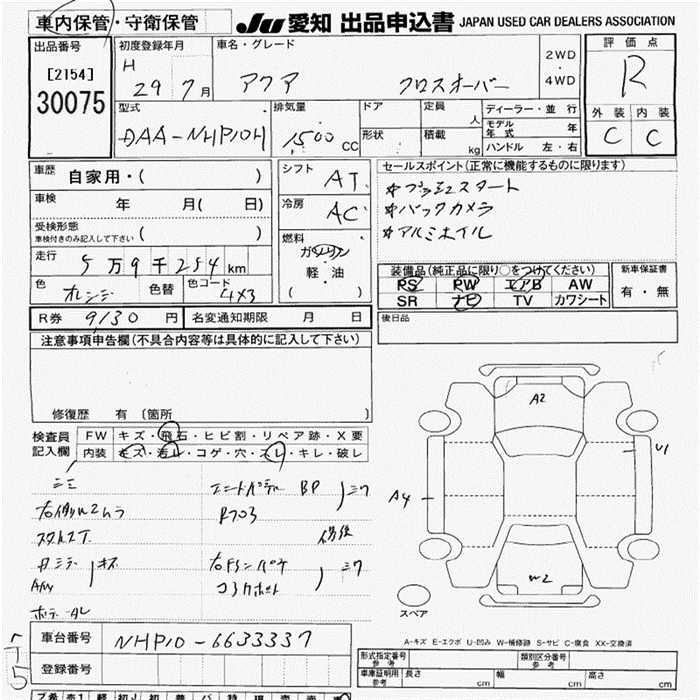 車内保管・守衛保管
JU 愛知 出品申込書 JAPAN USED CAR DEALERS ASSOCIATION
出品番号
[2154]
30075
初度登録年月
H 29 7月
車名・グレード
アクア クロスオーバー
2WD・4WD
評価点
R
外装 内装
C C
型式
DAA-NHP10H
排気量
1,500 CC
ドア
形状
定員 人
積載 kg
ディーラー・並行
モデル年式 年
ハンドル 左・右
車歴 自家用・( )
車検 年 月( 日)
受検形態
車検付きのみ記入して下さい ( )
走行 5万9千254km
色 オレンジ 色替 色コード 4X3
シフト AT
冷房 AC
燃料
ガソリン
軽・油
( )
セールスポイント(正常に機能するものに限ります)
*プッシュスタート
*バックカメラ
*アルミホイル
装備品(純正品に限り○をつけてください)
PS PW エアB AW
SR ナビ TV カワシート
新車保証書
有・無
R券 9130 円 名変通知期限 月 日
後日品
注意事項申告欄(不具合内容等は具体的に記入して下さい)
修復歴 有 〔箇所 〕
検査員記入欄
FW キズ・飛石・ヒビ割・リペア跡・X要
内装 キズ・汚レ・コゲ・穴・スレ・キレ・破レ
BP
修後
A2
U1
A4
W2
スペア
A-キズ E-エクボ U-凹み W-補修跡 S-サビ C-腐食 XX-交換済
車台番号 NHP10-6633337
登録番号
形式指定番号 参考
類別区分番号 参考
車庫証明用 参考 長さ cm 幅 cm 高さ cm